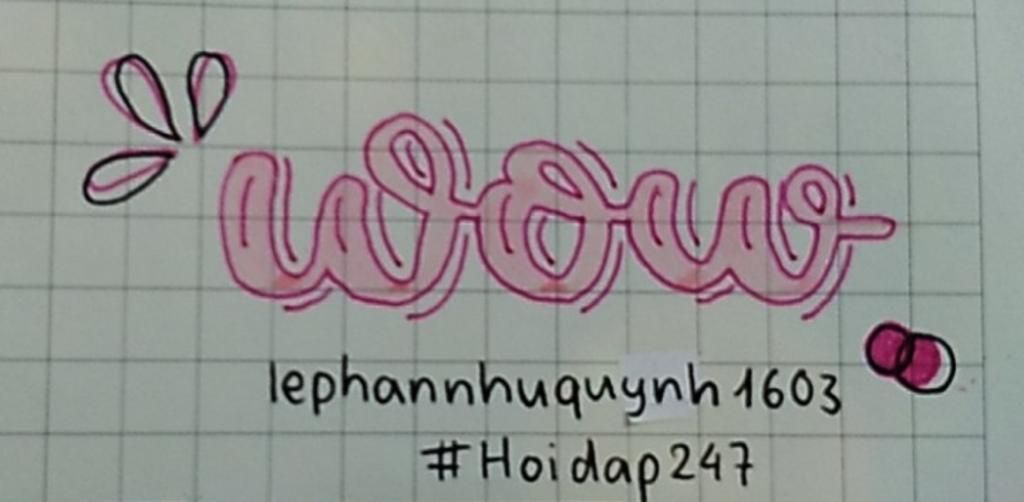 wow
lephannhuquynh1603
#Hoidap247